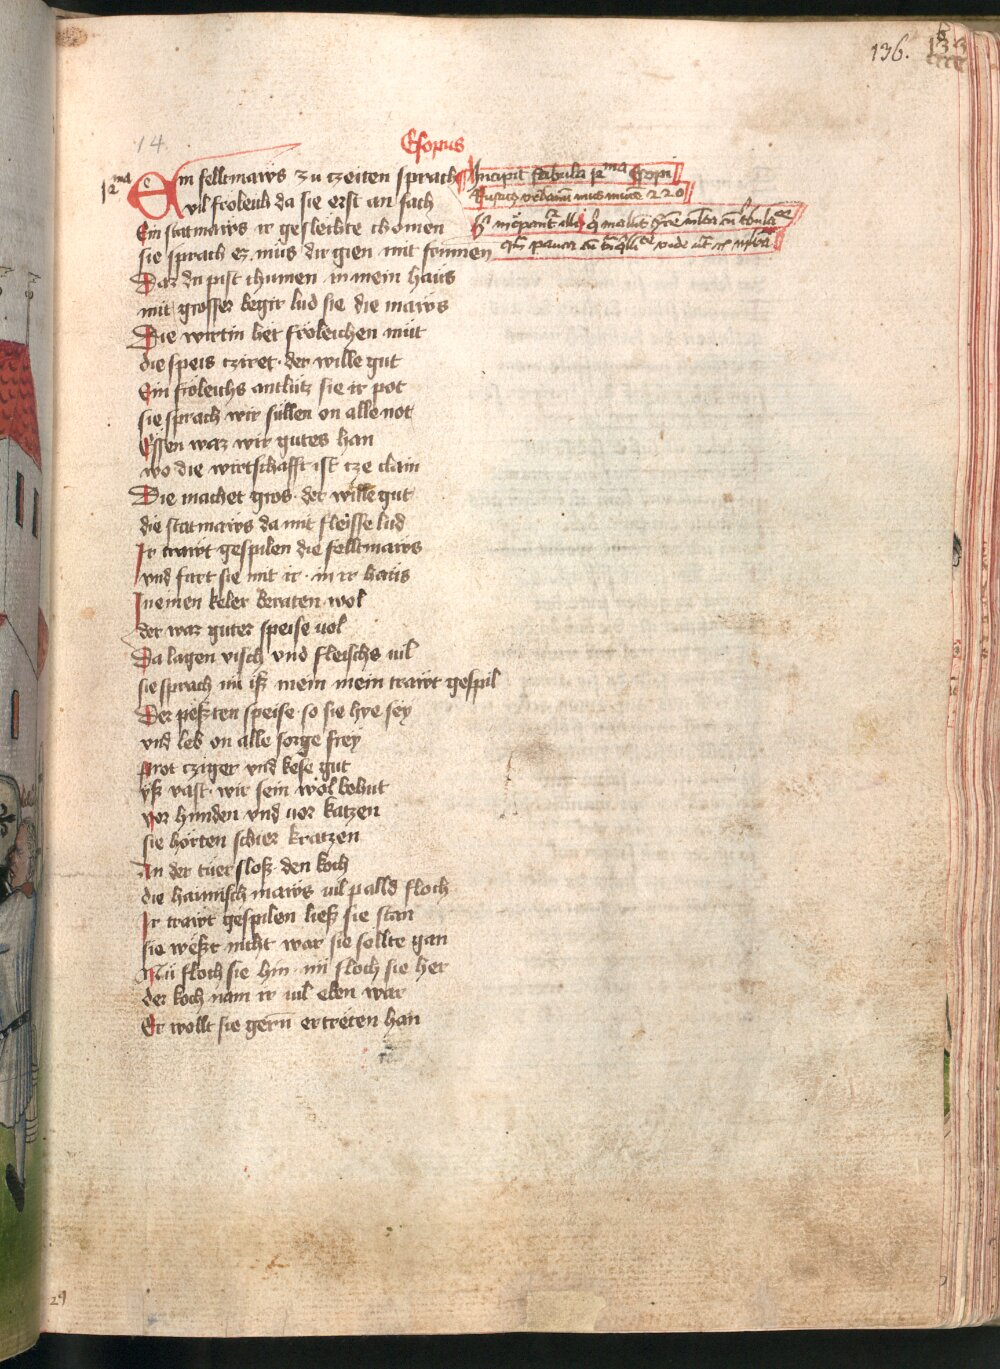 136.
133
14
Esopus
12ma
Ein felltmaws zu czeiten sprach
vil froleich da sie erst an sach
Ein statmaws ir gesleichte chomen
sie sprach ez mus dir gien mit frumen
Daz du pist chumen in mein haus
mit grosser begir lud sie die maws
Die wirtin het froleichen mut
die speis cziret der wille gut
Ein froleichs antlutz sie ir pot
sie sprach wir sullen on alle not
Essen waz wir gutes han
wo die wirtschafft ist cze clain
Die machet gros der wille gut
die statmaws da mit fleisse lud
Ir trawt gespilen die felltmaws
und furt sie mit ir in ir haus
In einen keler beraten wol
der war guter speise uol
Da lagen visch und fleischs uil
sie sprach nu iß mein mein trawt gespil
Der peßten speise so sie hye sey
und leb on alle sorge frey
Prot cziger und kese gut
yß vast wir sein wol behut
vor hunden und uor katzen
sie horten schier kratzen
An der tuer sloß den koch
die haimisch maws uil palld floch
Ir trawt gespilen ließ sie stan
sie weßt nicht war sie sollte gan
Nu floch sie hin nu floch sie her
der koch nam ir uil eben war
Er wollt sie gern ertreten han
Incipit fabula 12ma Esopi
Rusticus urbanum mus murem 220
29